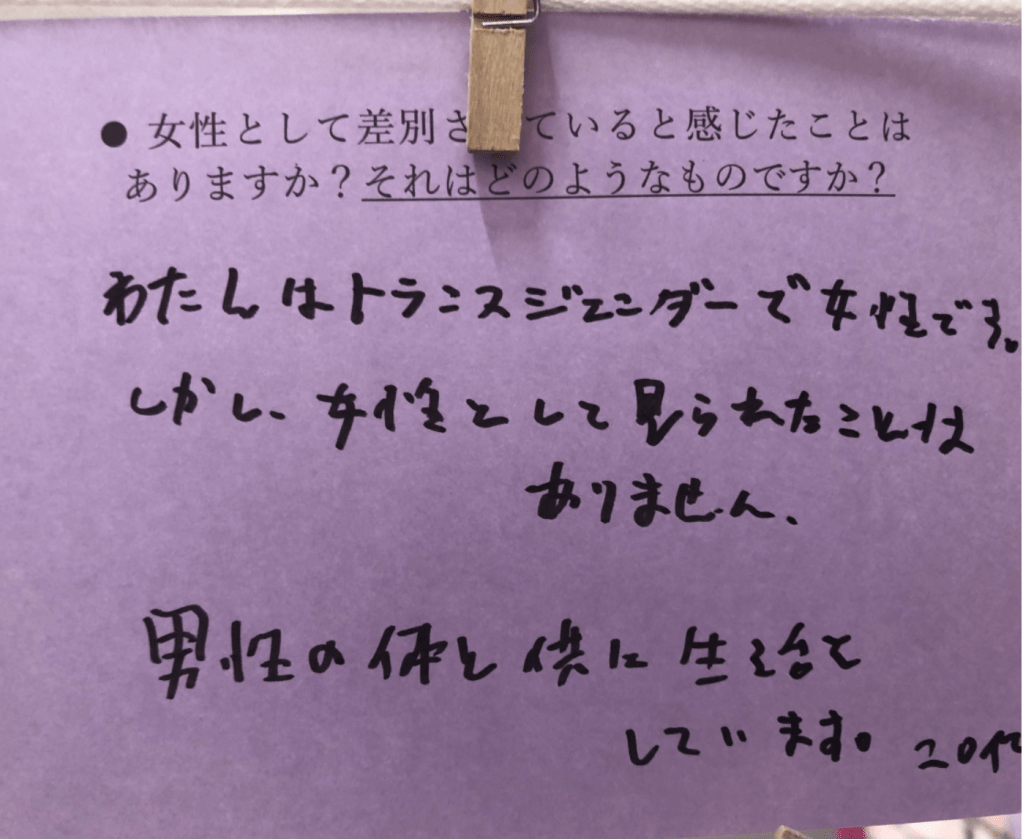 ● 女性として差別さ ていると感じたことは
ありますか？それはどのようなものですか？
わたしはトランスジェンダーで女性です。
しかし、女性として見られたことは
ありません、
男性の体と供に生活を
しています。20代